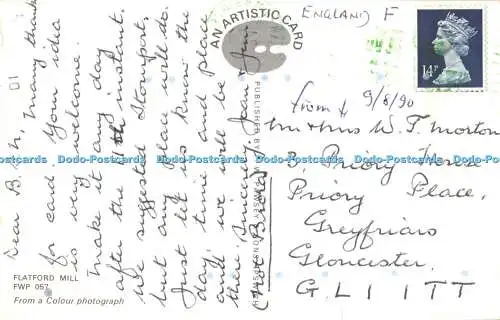 Dear B & W, Many thanks
for card. Your idea
is very welcome.
Make it any day
after the 17th instant.
We suggested Stourport,
but any place will do.
Just let us know the
day, time and place
and we will be
there. Sincerely, Jean & Jim
AN ARTISTIC CARD
PUBLISHED BY
ENGLAND F
14P
From
9/8/90
Mr & Mrs W. T. Morton
3, Priory House
Priory Place,
Greyfriars
Gloucester.
GL1 1TT
FLATFORD MILL
FWP 057
From a Colour photograph
Dodo-Postcards Dodo-Postcards Dodo-Postcards Dodo-Postcards Dodo-Postcards Dodo-Postcards